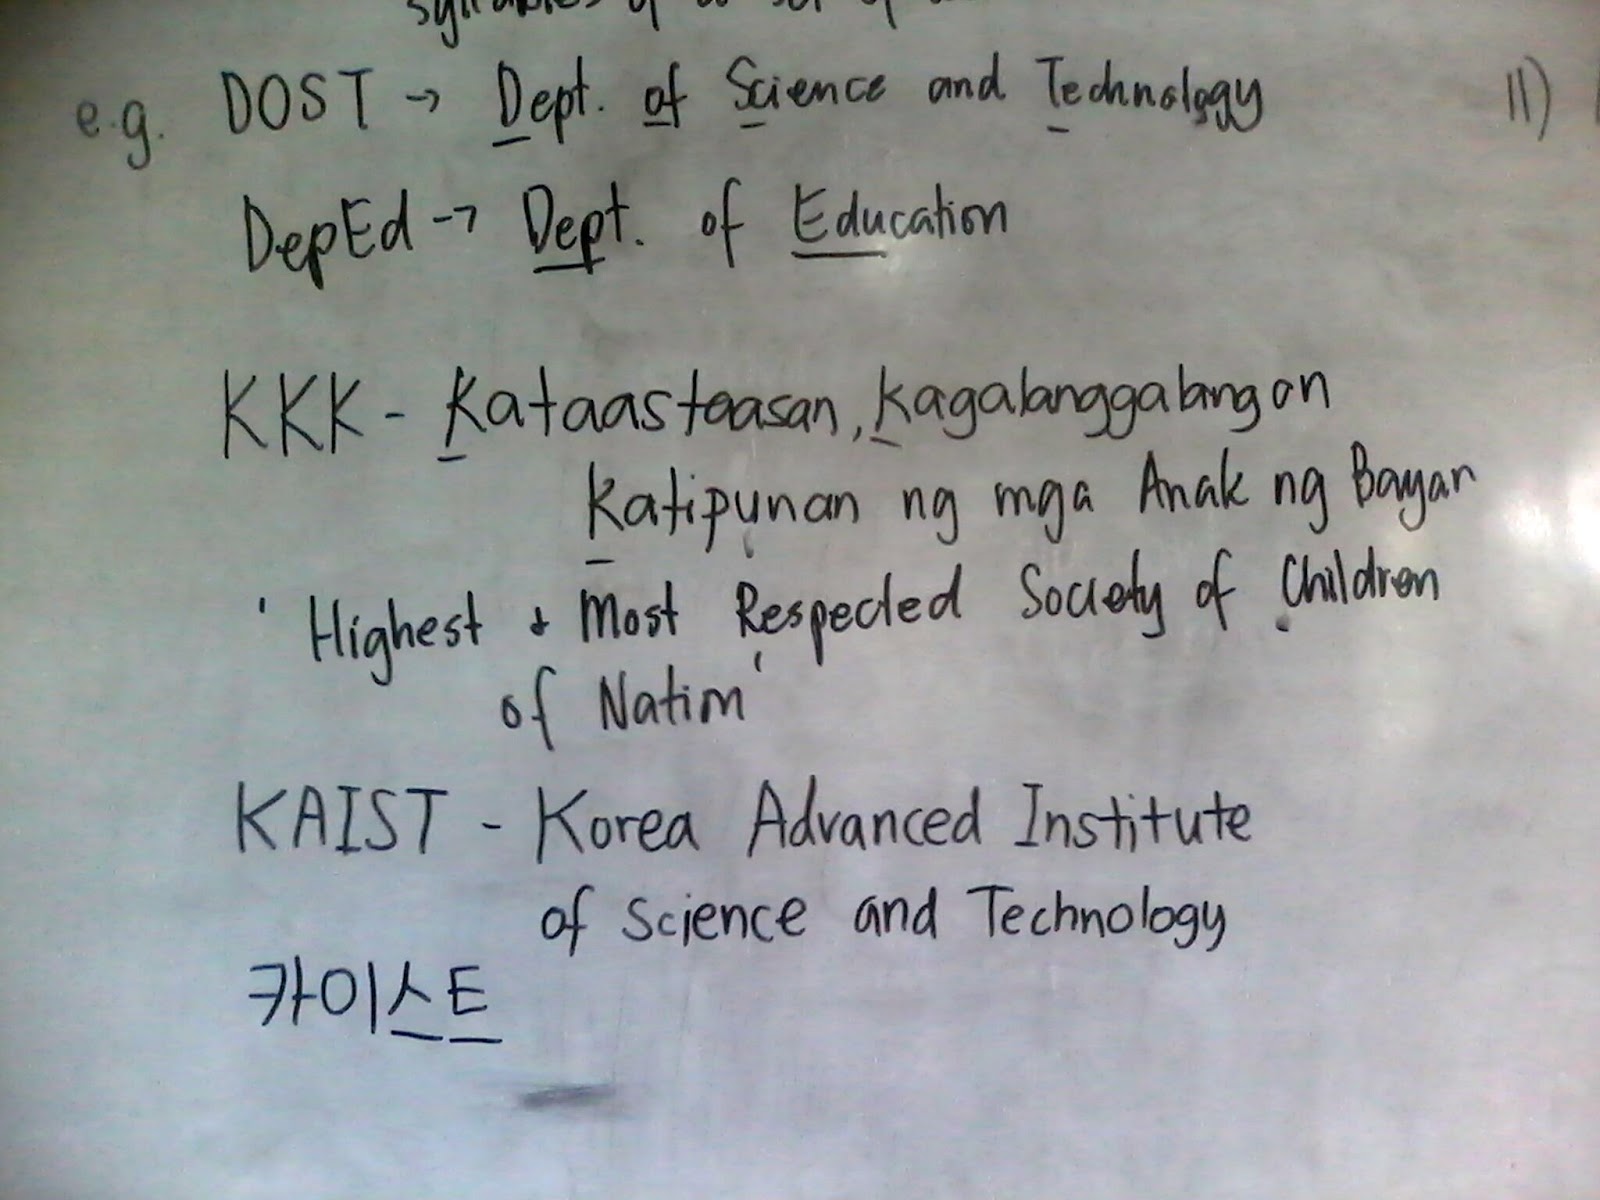 syllables of a set of
e.g. DOST → Dept. of Science and Technology 11)
DepEd → Dept. of Education
KKK - Kataastaasan, Kagalanggalangan
Katipunan ng mga Anak ng Bayan
' Highest & Most Respected Society of Children
of Nation '
KAIST - Korea Advanced Institute
of Science and Technology
카이스트